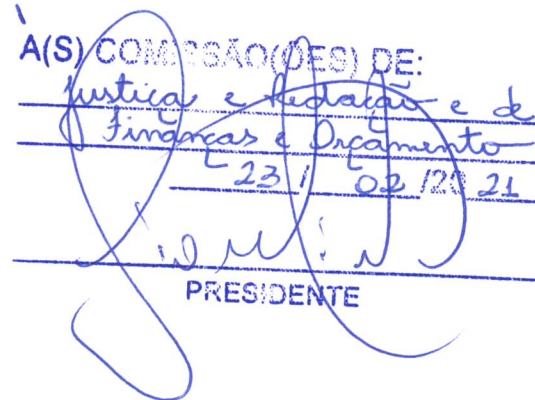 À(S) COMISSÃO(ÕES) DE:
Justiça e Redação e de
Finanças e Orçamento
23 / 02 /20 21
PRESIDENTE